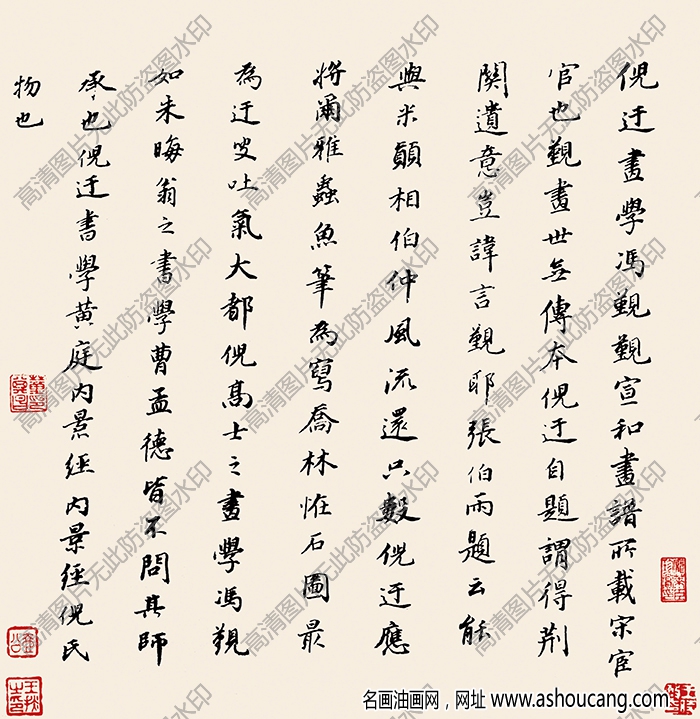 倪迂畫學馮覲覲宣和畫譜所載宋宦
官也覲畫世無傳本倪迂自題謂得荆
關遺意豈諱言覲耶張伯雨題云能
與米顛相伯仲風流還只數倪迂應
將爾雅蟲魚筆為寫喬林恠石圖最
為迂叟吐氣大都倪高士之畫學馮覲
如朱晦翁之書學曹孟德皆不問其師
承也倪迂書學黃庭内景經内景經倪氏
物也
高清图片无此防盗图水印
名画油画网，网址 www.ashoucang.com